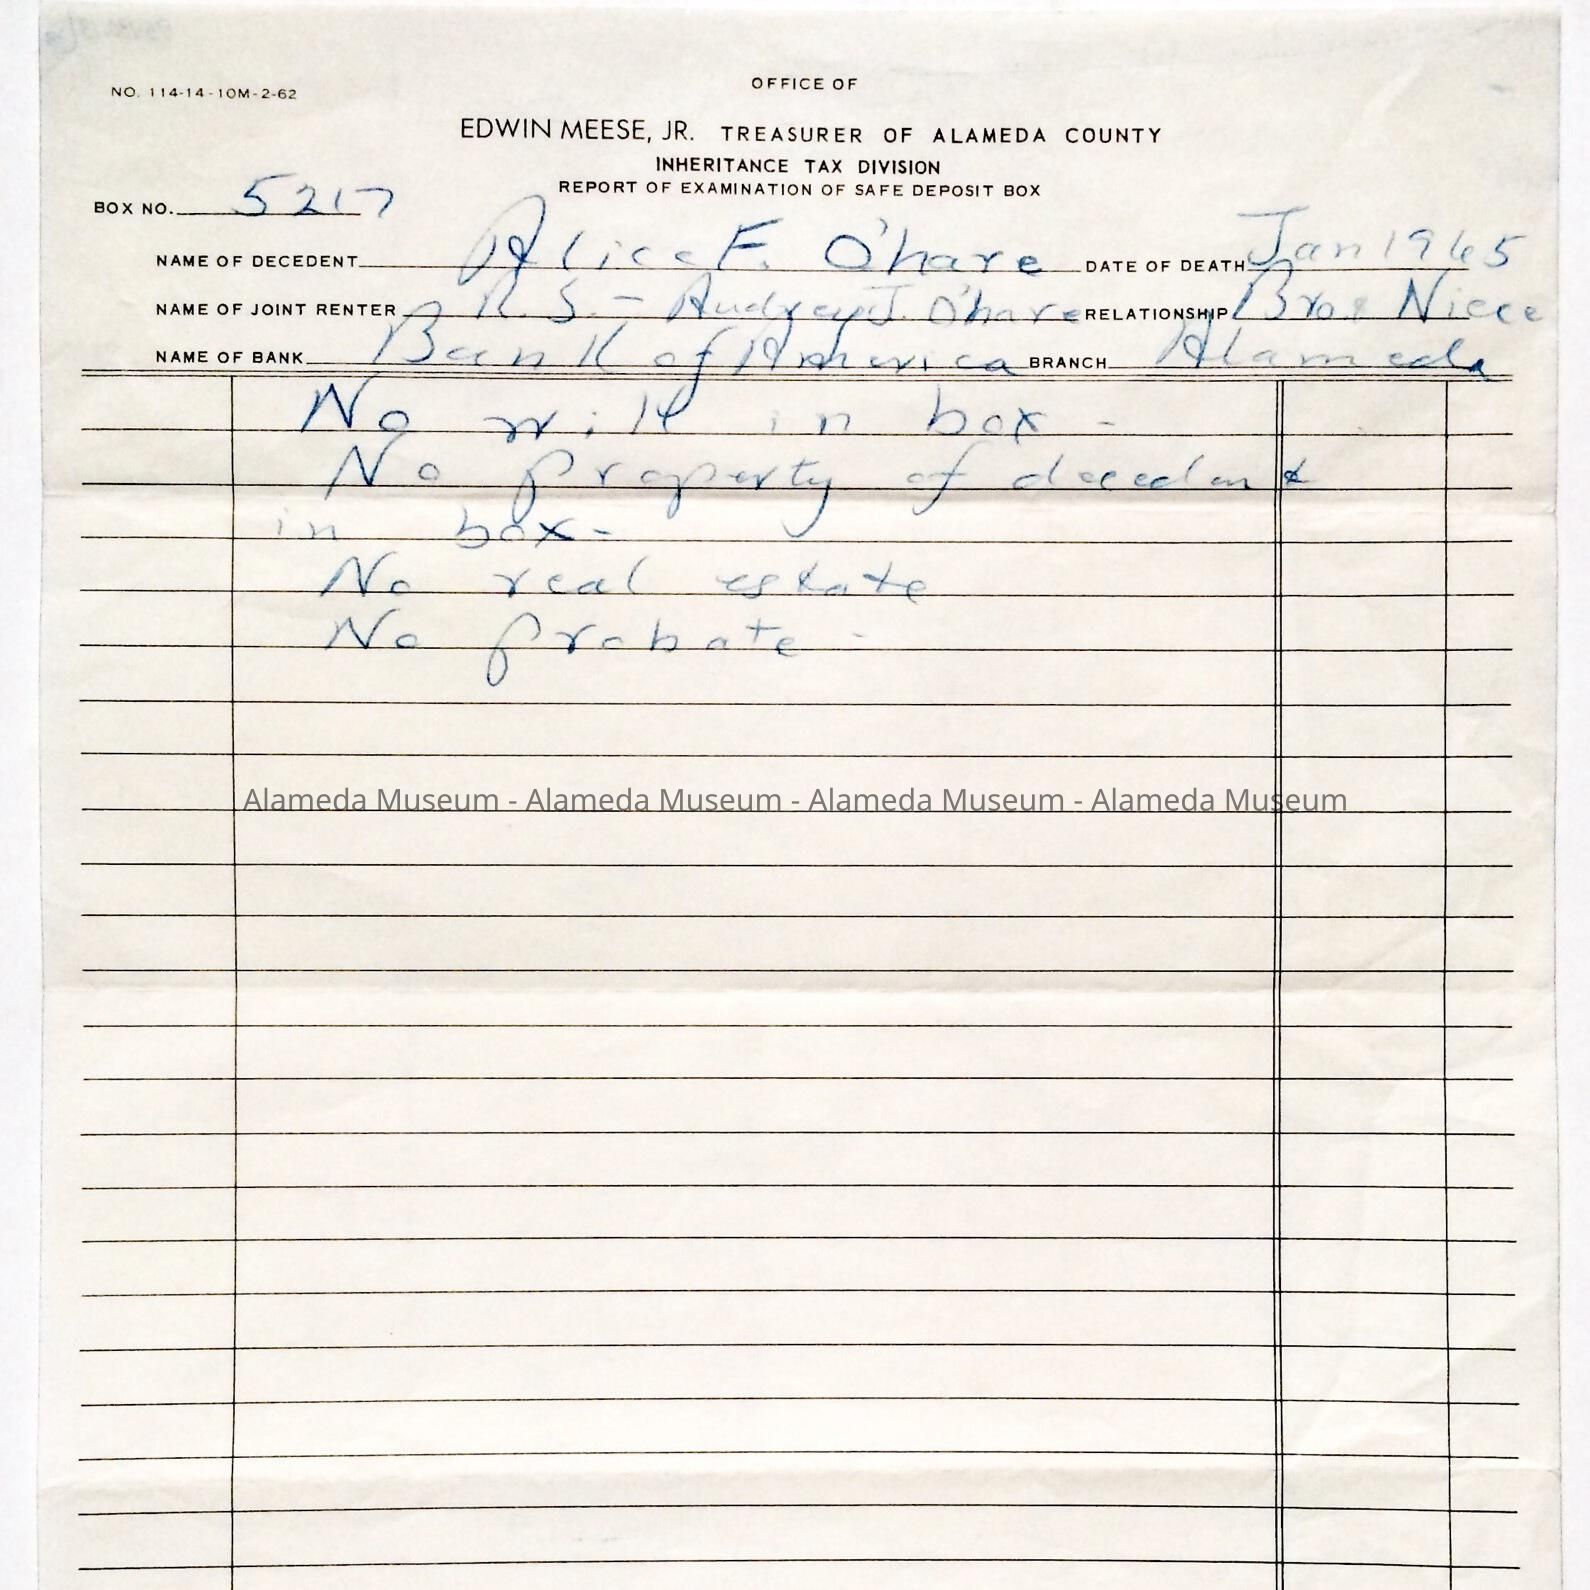 NO. 114-14-10M-2-62
OFFICE OF
EDWIN MEESE, JR. TREASURER OF ALAMEDA COUNTY
INHERITANCE TAX DIVISION
REPORT OF EXAMINATION OF SAFE DEPOSIT BOX
BOX NO. 5217
NAME OF DECEDENT Alice F. O'hare DATE OF DEATH Jan 1965
NAME OF JOINT RENTER R. S. - Audrey J. O'hare RELATIONSHIP Bro & Niece
NAME OF BANK Bank of America BRANCH Alameda
No will in box -
No property of decedent
in box -
No real estate
No probate -
Alameda Museum - Alameda Museum - Alameda Museum - Alameda Museum